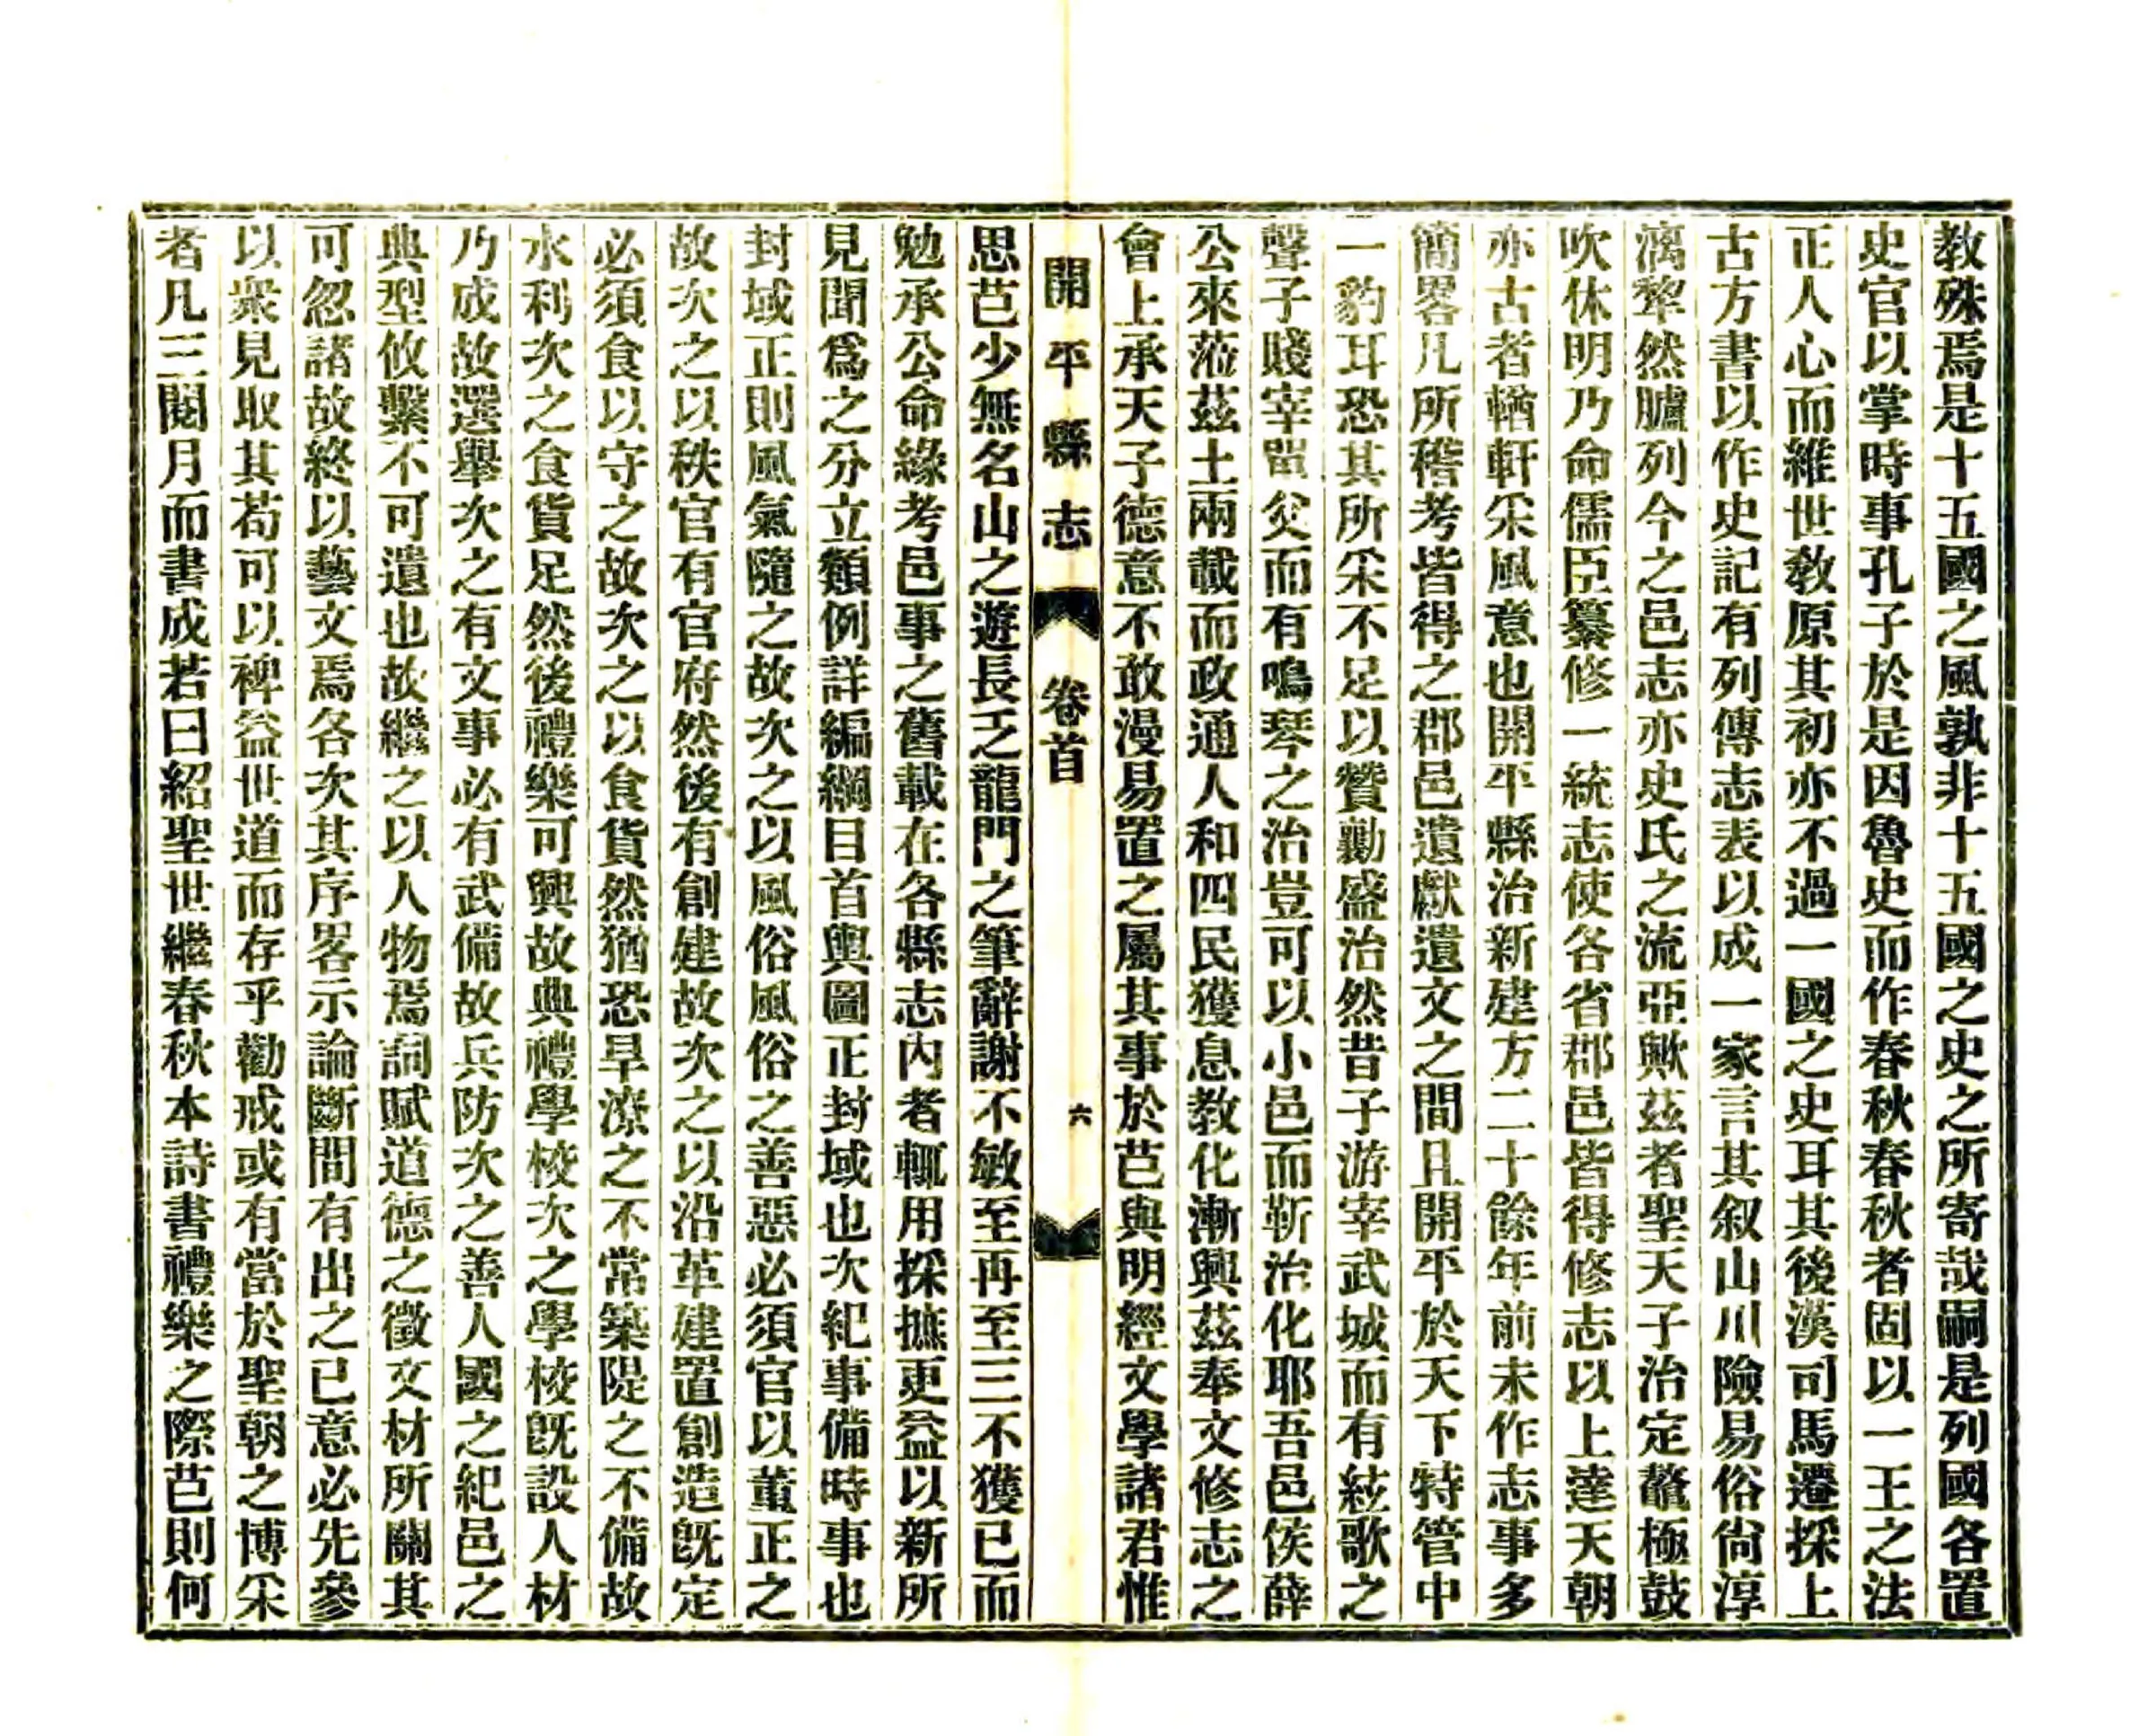 教殊焉是十五國之風孰非十五國之史之所寄哉嗣是列國各置
史官以掌時事孔子於是因魯史而作春秋春秋者固以一王之法
正人心而維世敎原其初亦不過一國之史耳其後漢司馬遷採上
古方書以作史記有列傳志表以成一家言其叙山川險易俗尙淳
漓犂然臚列今之邑志亦史氏之流亞歟茲者聖天子治定鼇極鼓
吹休明乃命儒臣纂修一統志使各省郡邑皆得修志以上達天朝
亦古者輶軒采風意也開平縣治新建方二十餘年前未作志事多
簡畧凡所稽考皆得之郡邑遺獻遺文之間且開平於天下特管中
一豹耳恐其所采不足以贊勷盛治然昔子游宰武城而有絃歌之
聲子賤宰單父而有鳴琴之治豈可以小邑而靳治化耶吾邑侯薛
公來蒞茲土兩載而政通人和四民獲息敎化漸興茲奉文修志之
會上承天子德意不敢漫易置之屬其事於芑與明經文學諸君惟
開平縣志 卷首 六
思芑少無名山之遊長乏龍門之筆辭謝不敏至再至三不獲已而
勉承公命緣考邑事之舊載在各縣志內者輒用採摭更益以新所
見聞爲之分立類例詳編綱目首輿圖正封域也次紀事備時事也
封域正則風氣隨之故次之以風俗風俗之善惡必須官以董正之
故次之以秩官有官府然後有創建故次之以沿革建置創造旣定
必須食以守之故次之以食貨然猶恐旱潦之不常築隄之不備故
水利次之食貨足然後禮樂可興故典禮學校次之學校旣設人材
乃成故選舉次之有文事必有武備故兵防次之善人國之紀邑之
典型攸繫不可遺也故繼之以人物焉詞賦道德之徵文材所關其
可忽諸故終以藝文焉各次其序畧示論斷間有出之已意必先參
以衆見取其苟可以裨益世道而存乎勸戒或有當於聖朝之博采
者凡三閱月而書成若曰紹聖世繼春秋本詩書禮樂之際芑則何